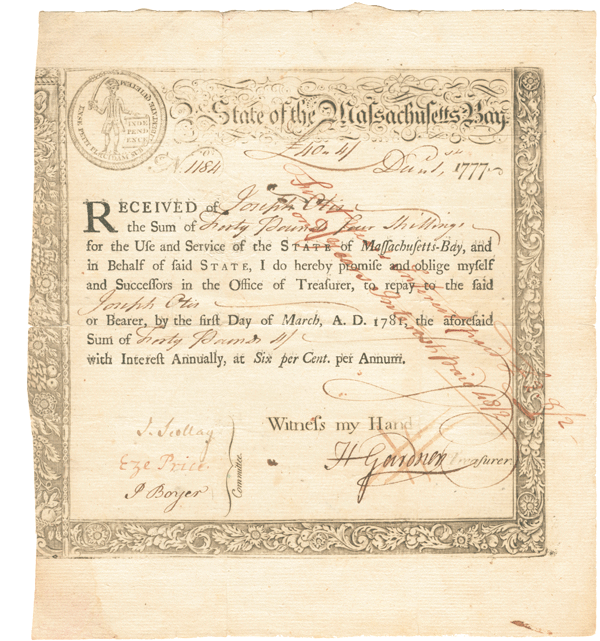 INDE
PEND
ENCE
State of the Massachusetts Bay.
£40..4/
No. 1184 Decr. 1st. 1777
RECEIVED of Joseph Otis
the Sum of Forty Pounds four Shillings
for the Use and Service of the STATE of Massachusetts-Bay, and
in Behalf of said STATE, I do hereby promise and oblige myself
and Successors in the Office of Treasurer, to repay to the said
Joseph Otis
or Bearer, by the first Day of March, A. D. 1781, the aforesaid
Sum of Forty Pounds 4/
with Interest Annually, at Six per Cent. per Annum.
Witness my Hand
H Gardner Treasurer
J. Scollay
Eze Price
P Boyer
Committee.